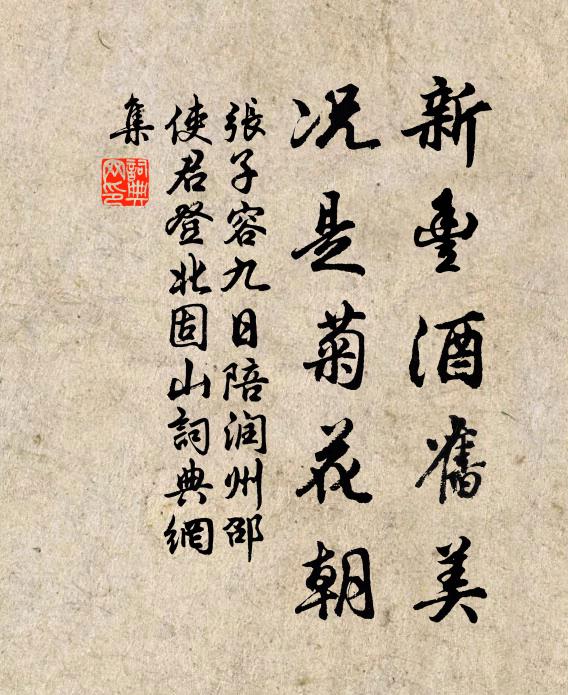 新豐酒舊美
况是菊花朝
張子容九日陪润州邵
使君登北固山詞典網
集
詞典
网印